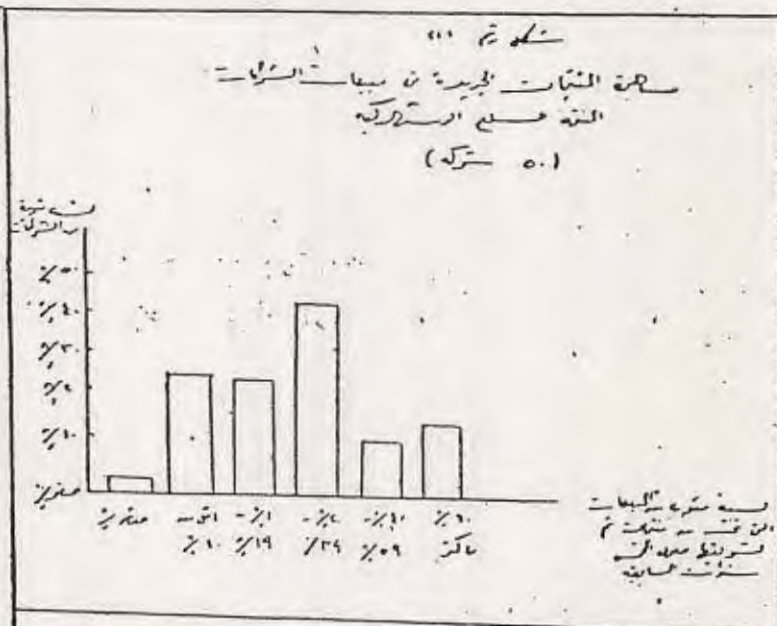 شكل رقم
مساهمة المنتجات الجديدة في مبيعات الشركات
المنتجة للسلع الاستهلاكية
(٥٠ شركة)
النسبة المئوية
من الشركات
٪٥٠
٪٤٠
٪٣٠
٪٢٠
٪١٠
صفر٪
صفر٪
أقل من
٪١٠
٪١٠ -
٪١٩
٪٢٠ -
٪٣٩
٪٤٠ -
٪٥٩
٪٦٠
فأكثر
نسبة مئوية من المبيعات
التي تمت من منتجات تم
تسويقها خلال الخمس
سنوات السابقة